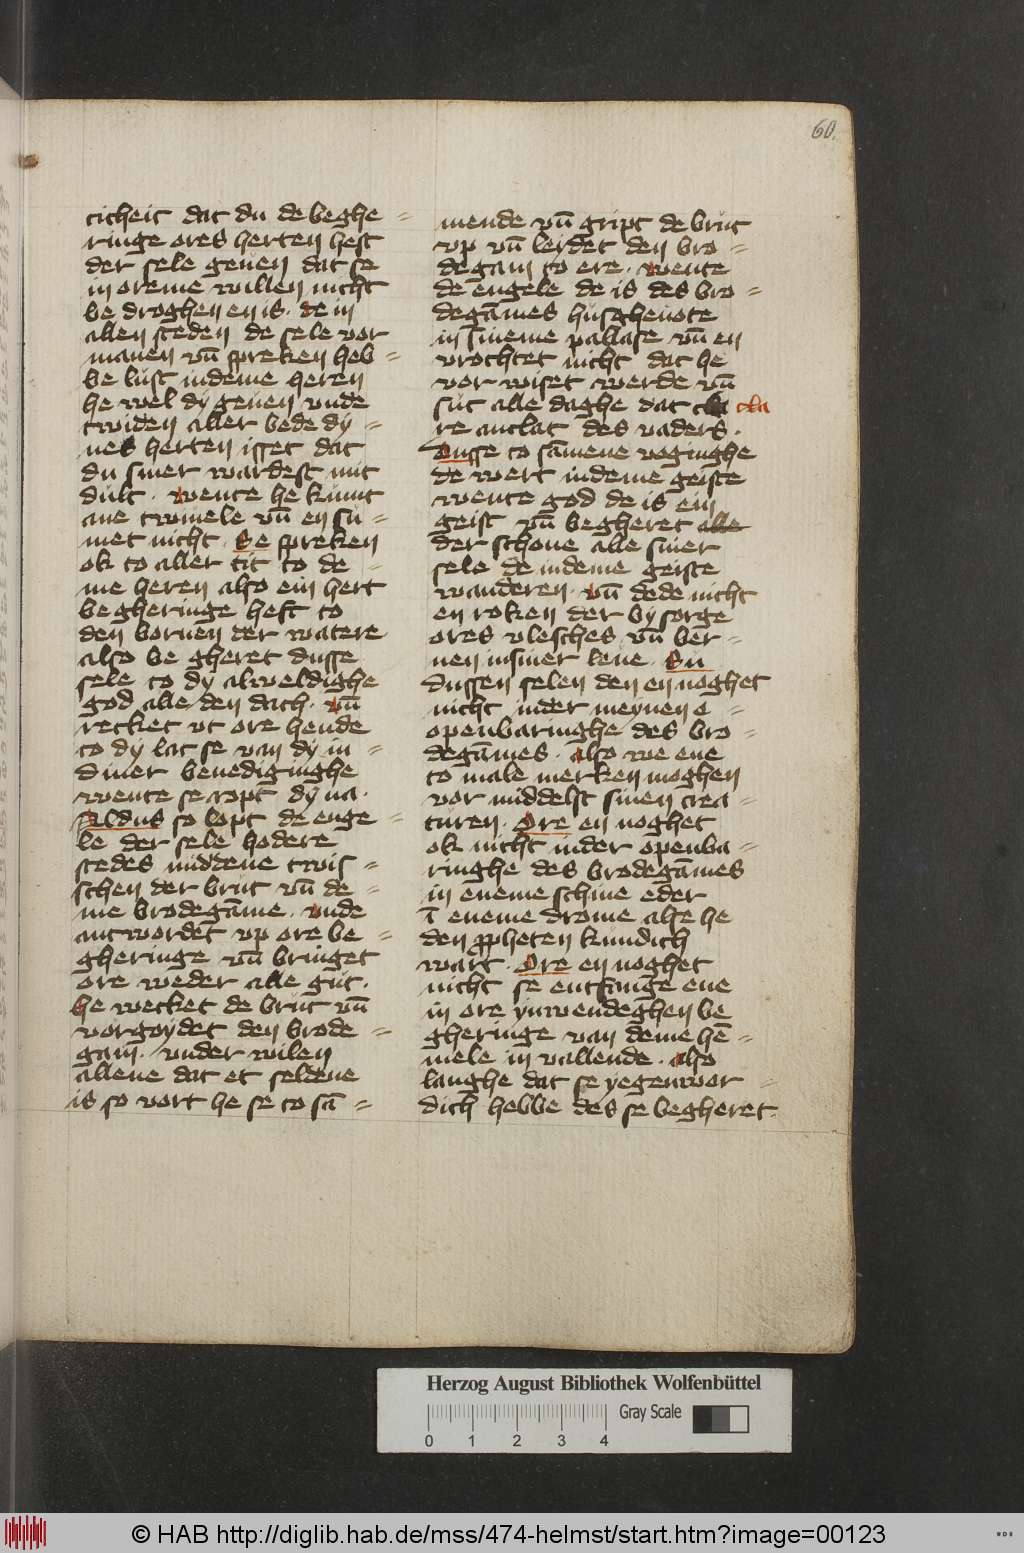 60.
ticheit dat du de beghe =
ringe ores herten hest
der sele geuen dat se
in oreme willen nicht
be droghen en is · de in
allen steden de sele vor
manen vn̄ spreken heb =
be lust indeme heren
he wel dy geuen vnde
twiden aller bede dy =
nes herten isset dat
du siner wardest mit
dult · wente he kumt
ane twiuele vn̄ en su =
met nicht · Se spreken
ok to aller tit to de =
me heren also ein hert
begheringe heft to
den bornen der watere
also be gheret dusse
sele to dy alweldighe
god alle den dach · vn̄
recket vt ore hende
to dy lat se van dy in =
diner benediginghe
wente se ropt dy na ·
Aldus so lopt de enge =
le der sele hodere
stedes middene twis =
schen der brut vn̄ de =
me brodegāme · vnde
antwordet vp ore be =
gheringe vn̄ bringet
ore weder alle gut ·
he wecket de brut vn̄
vorgoydet den brode =
gam · vnder wilen
allene dat et seldene
is so vort he se to sā =
mende vn̄ gript de brut
vp vn̄ leydet den bro =
degam to ere · wente
de engele de is des bro =
degāmes husghenote
in sineme pallase vn̄ en
vrochtet nicht dat he
vor wiset werde vn̄
sut alle daghe dat cla
re anclat des vaders ·
Dusse to sāmene voginghe
de wert indeme geiste
wente god de is ein
geist vn̄ begheret alle
der schone alle siner
sele de indeme geiste
wanderen · vn̄ dede nicht
en roken der bysorge
ores vlesches vn̄ ber =
nen insiner leue · Su
dussen selen den en noghet
nicht inder meynen o =
openbaringhe des bro =
degāmes · also we ene
to male merken moghen
vor middelst sinen crea =
turen · Ore en noghet
ok nicht inder openba =
ringhe des brodegāmes
in eneme schine eder
ī eneme drome alse he
den ppheten kundich
wart · Ore en noghet
nicht se entfange ene
in ore ynwendeghen be
gheringe van deme hē =
mele in vallende · also
langhe dat se yegenwor =
dich hebbe des se begheret ·
Herzog August Bibliothek Wolfenbüttel
0 1 2 3 4
Gray Scale
© HAB http://diglib.hab.de/mss/474-helmst/start.htm?image=00123